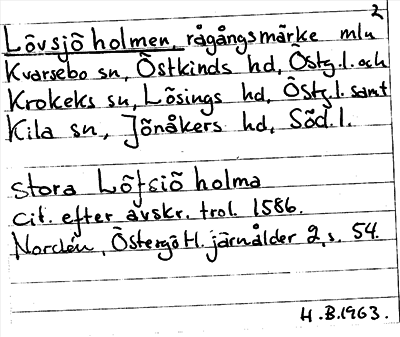 2
Lövsjö holmen, rågångsmärke mln
Kvarsebo sn, Östkinds hd, Östg.l. och
Krokeks sn, Lösings hd, Östg.l. samt
Kila sn, Jönåkers hd, Söd.l.
Stora Löfsiö holma
cit. efter avskr. trol. 1586.
Nordén, Östergötl. järnålder 2, s. 54.
H.B.1963.